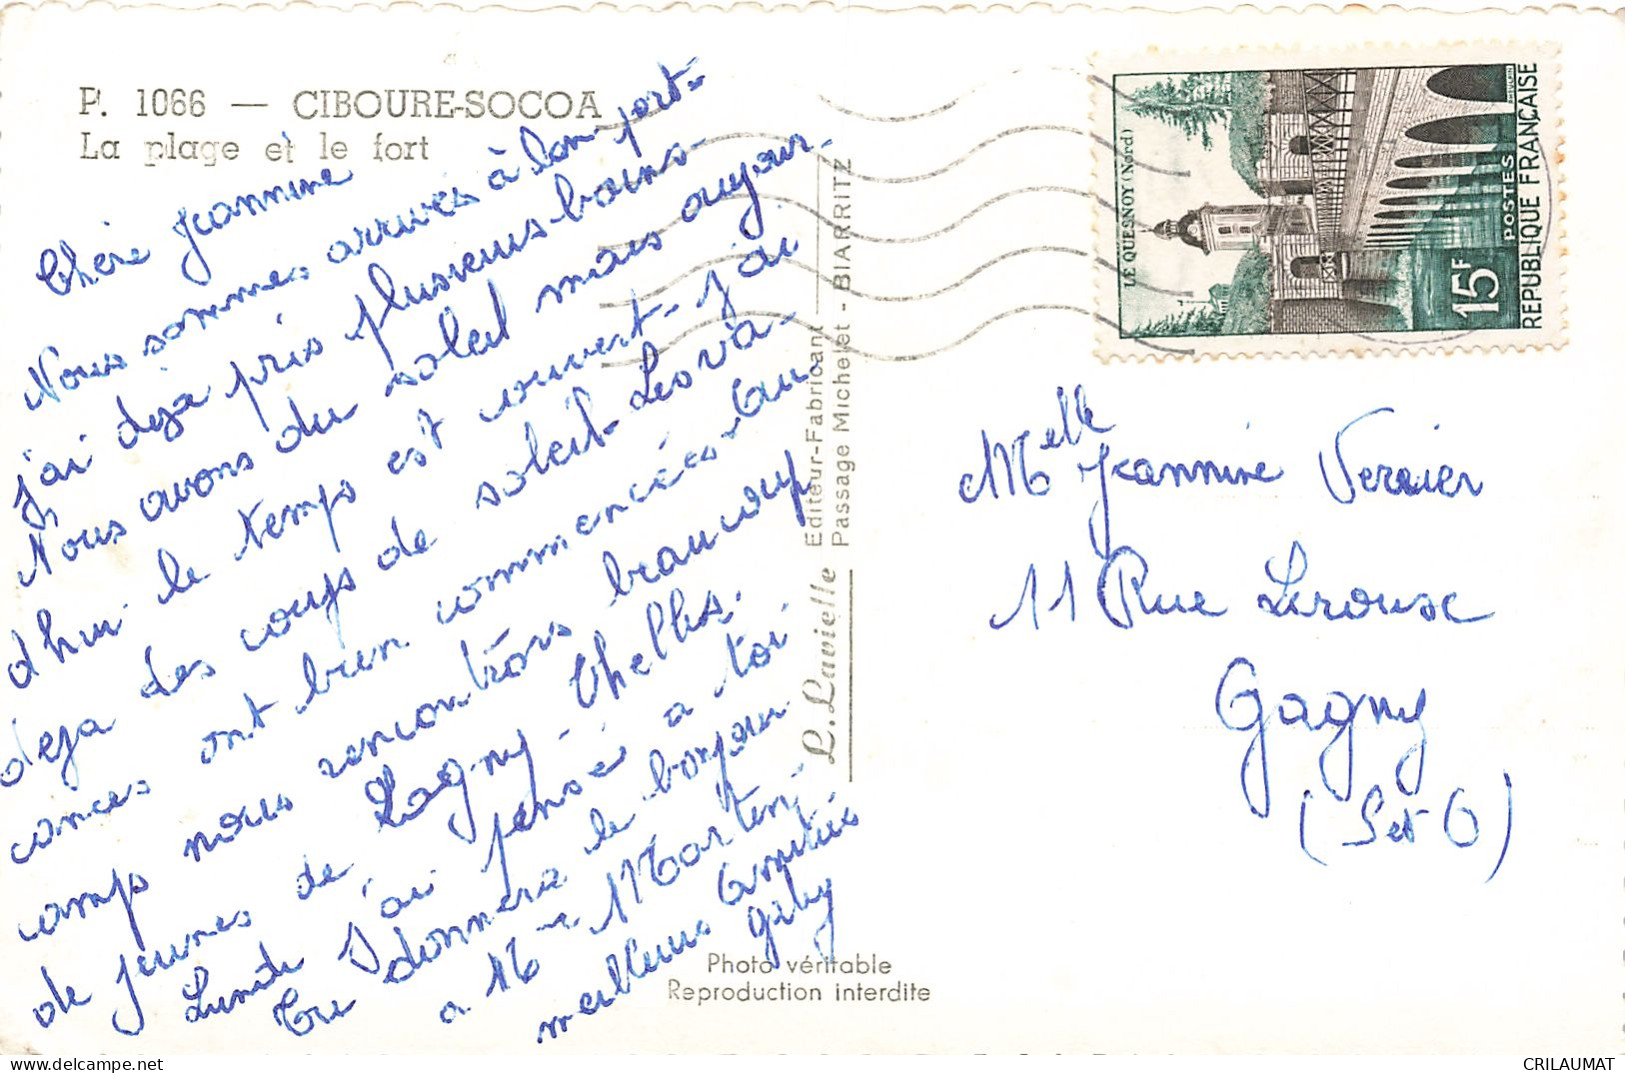 P. 1066 — CIBOURE-SOCOA
La plage et le fort
Chère Jeannine
Nous sommes arrivés à bon port-
j'ai déjà pris plusieurs bains-
Nous avons du soleil mais aujour-
d'hui le temps est couvert- j'ai
deja des coups de soleil- Les va-
cances ont bien commencées- Au
camp nous rencontrons beaucoup
de jeunes de Lagny- Chelles.
Lundi J'ai pensé a toi
Tu donnera le bonjour
a Me Martin
meilleurs Amitiés
Gaby
L. Lavielle Editeur-Fabricant
Passage Michelet - BIARRITZ
Photo véritable
Reproduction interdite
LE QUESNOY (Nord)
15F
POSTES
REPUBLIQUE FRANÇAISE
Melle Jeannine Verrier
11 Rue Leroux
Gagny
(S et O)
CRILAUMAT